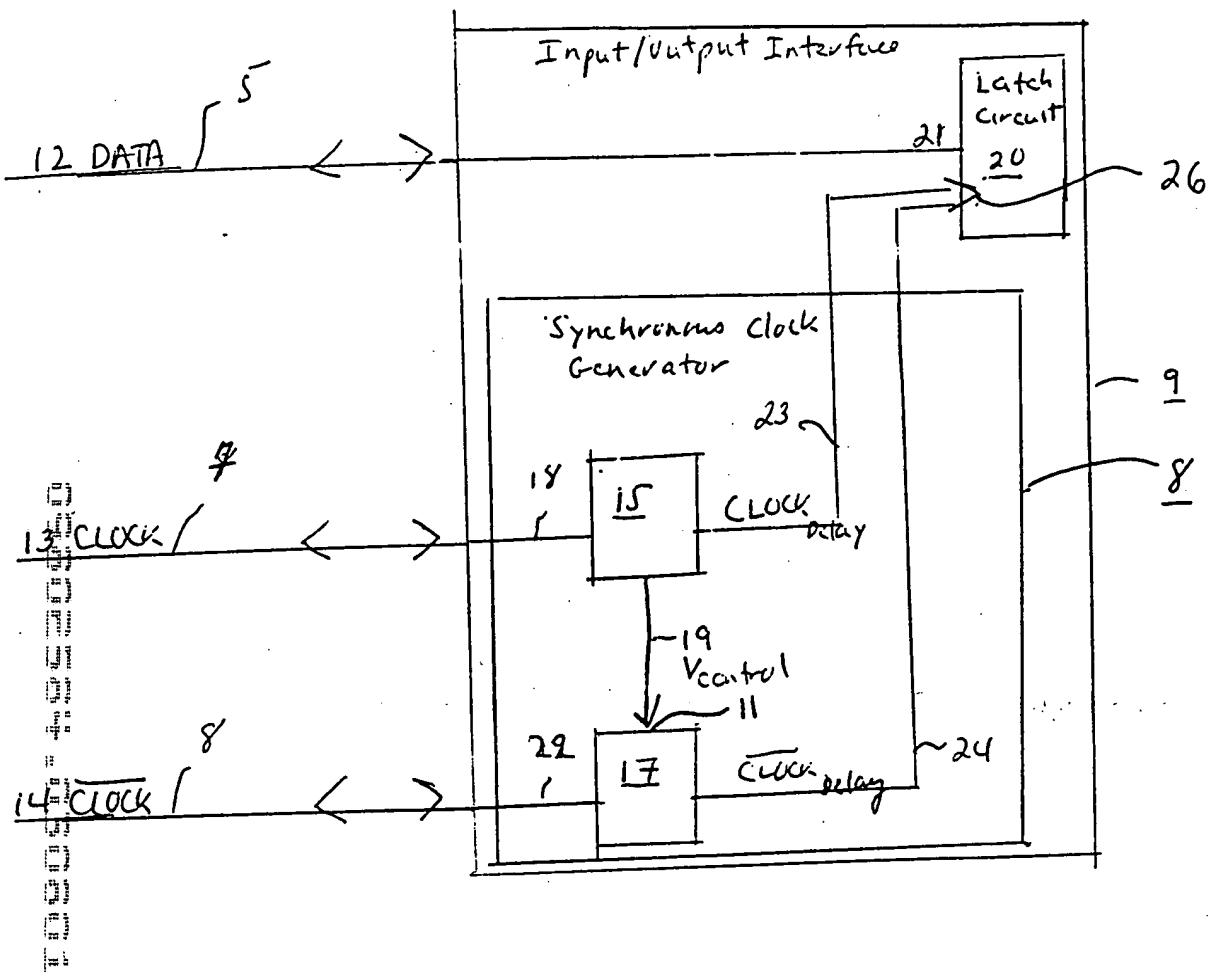 Input/Output Interface
Latch
Circuit
20
5
12 DATA
21
26
Synchronous Clock
Generator
9
23
8
7
18
15
CLOCK Delay
13 CLOCK
19
Vcontrol
11
8
22
17
C̅L̅O̅C̅K̅ Delay
24
14 C̅L̅O̅C̅K̅